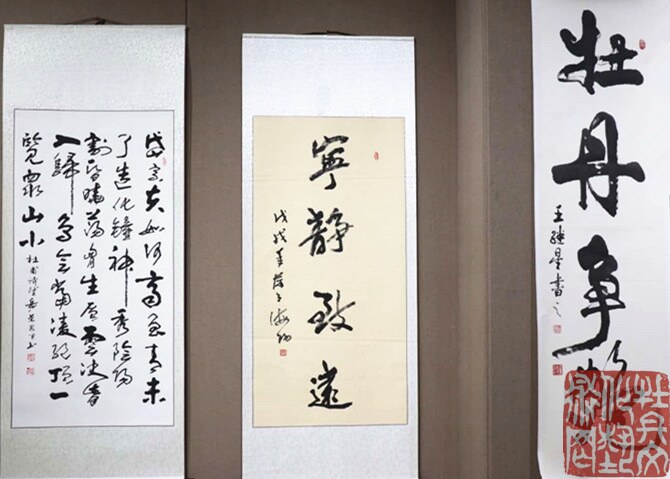 岱宗夫如何齊魯青未
了造化鍾神秀陰陽
割昏曉蕩胸生層雲決眥
入歸鳥會當凌絕頂一
覽眾山小
杜甫詩望嶽
寧靜致遠
戊戌年
牡丹争
王继星書之